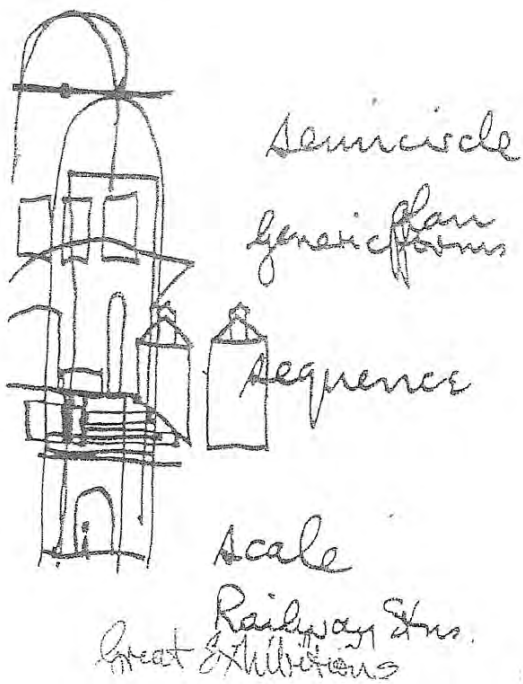 semicircle
plan
generic forms
sequence
scale
Railway Stns.
Great Exhibitions